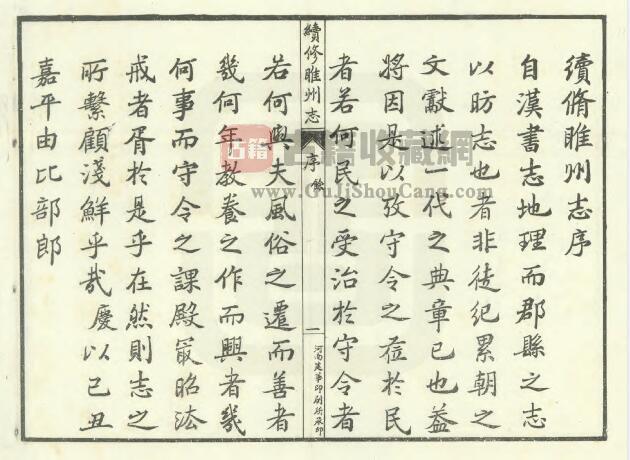 續脩睢州志序
自漢書志地理而郡縣之志
以昉志也者非徒紀累朝之
文獻述一代之典章已也蓋
將因是以攷守令之蒞於民
者若何民之受治於守令者
續修睢州志
序餘
一
河南建華印刷所承印
若何與夫風俗之遷而善者
幾何年教養之作而興者幾
何事而守令之課殿最昭法
戒者胥於是乎在然則志之
所繫顧淺鮮乎哉慶以己丑
嘉平由比部郎
古籍
古籍收藏網
www.GuJiShouCang.com